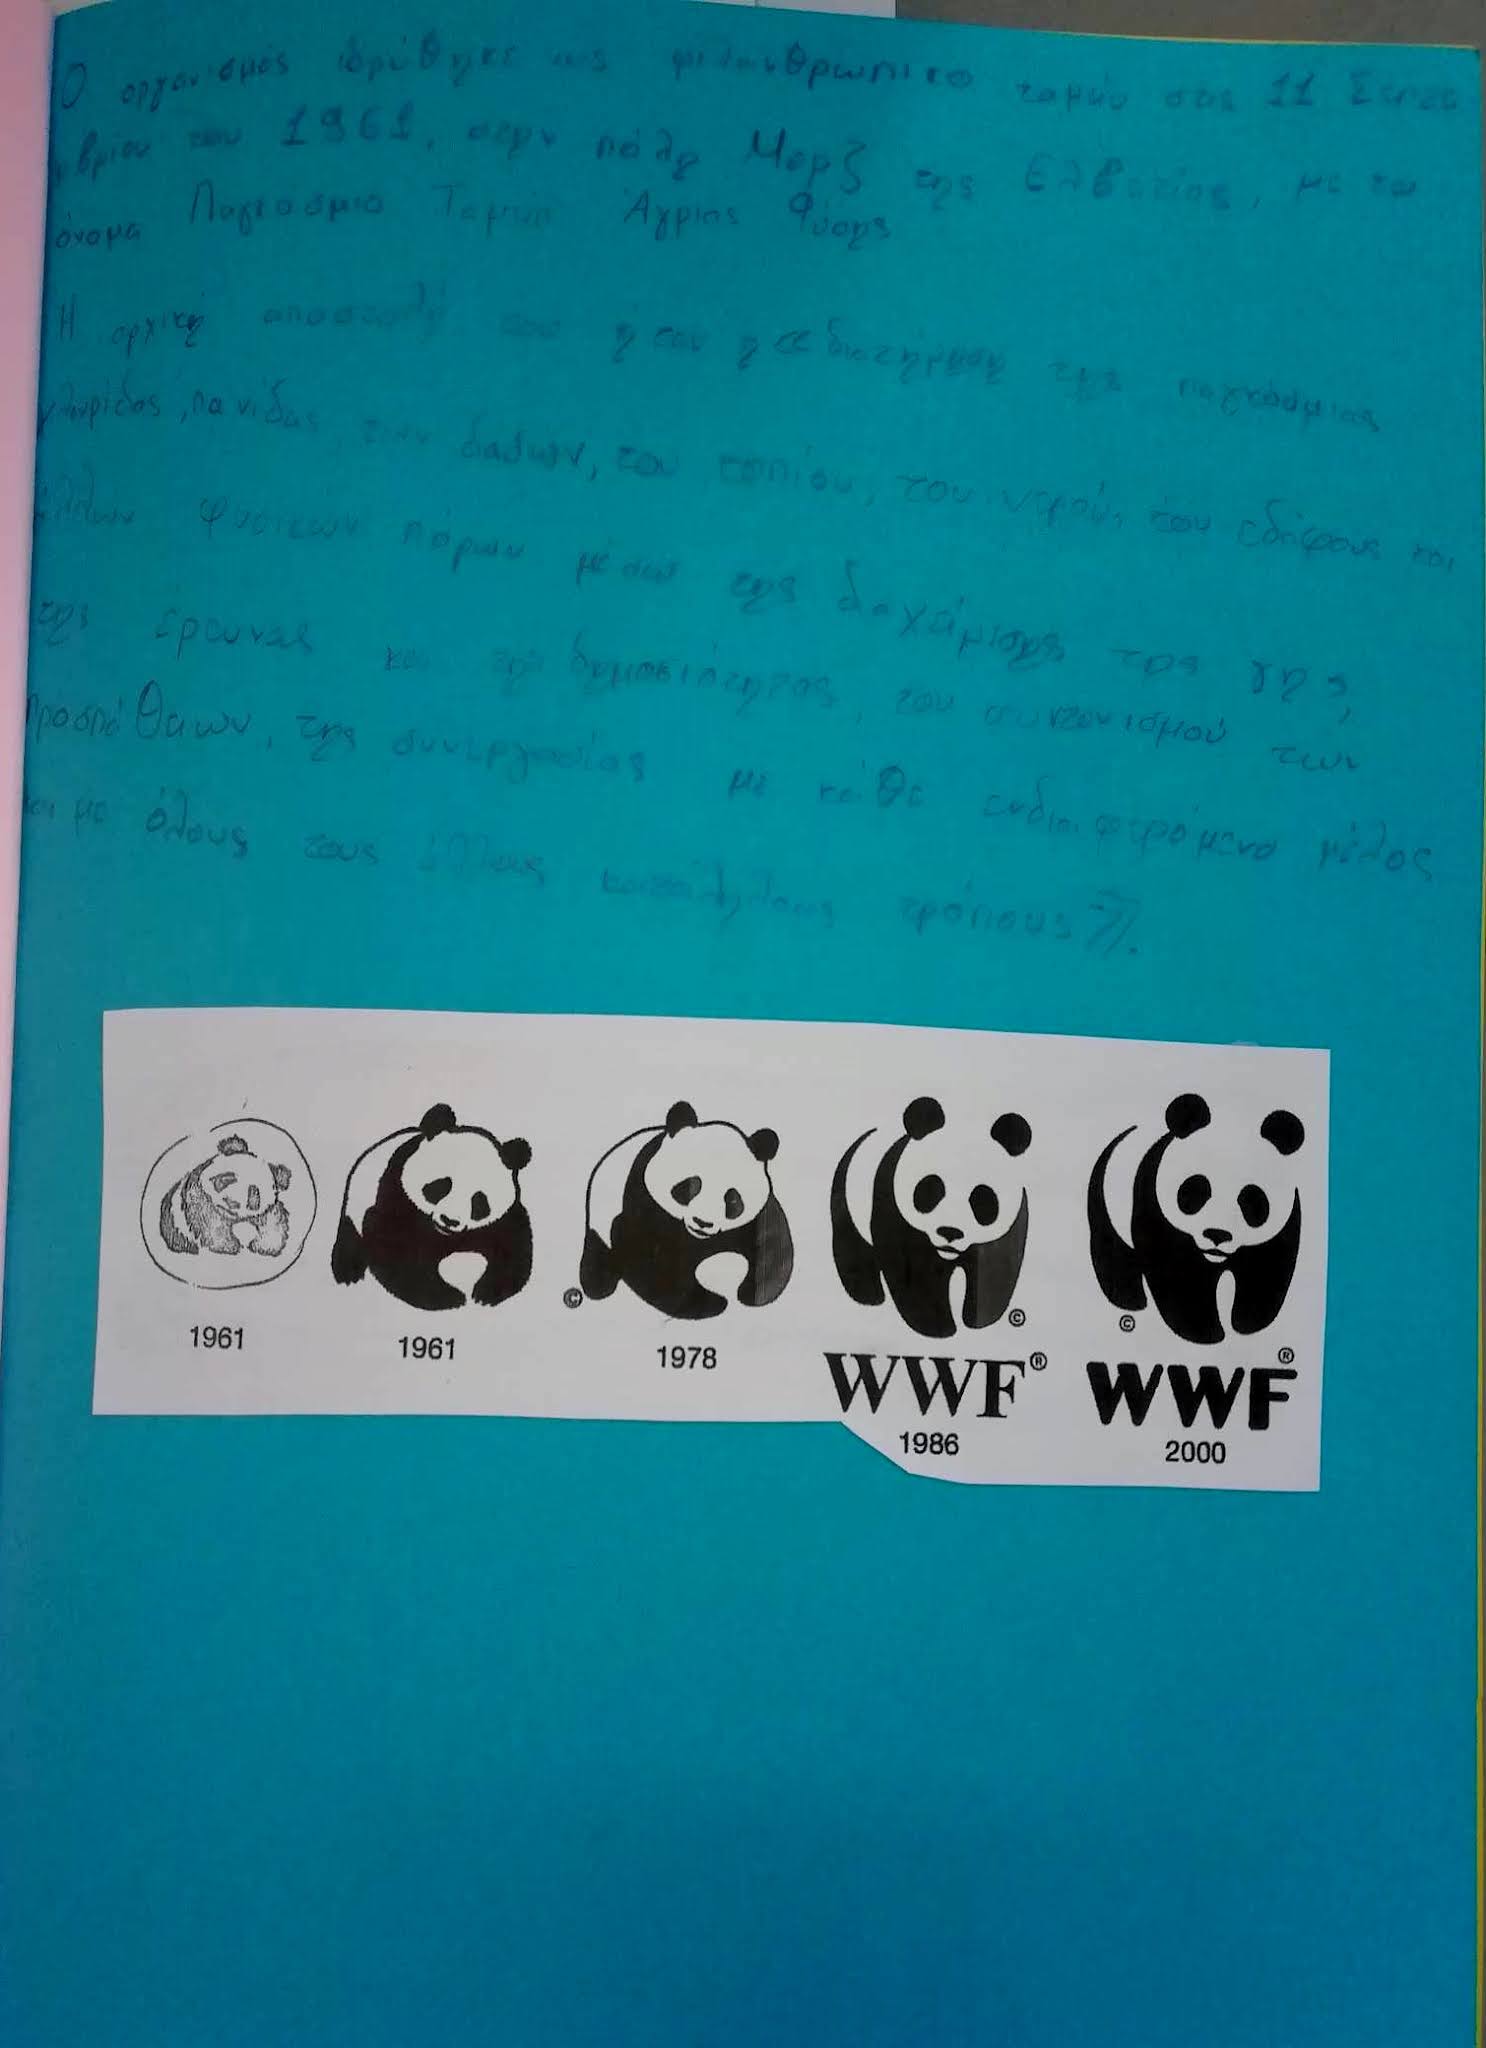 Ο οργανισμός ιδρύθηκε ως φιλανθρωπικο ταμείο στις 11 Σεπτε
μβρίου του 1961, στην πόλη Μορζ της Ελβετίας, με το
όνομα Παγκόσμιο Ταμείο Άγριας Φύσης
Η αρχική αποστολή του ήταν η << διατήρηση της παγκόσμιας
χλωρίδας, πανίδας, των δασών, του τοπίου, του νερού, του εδάφους και
άλλων φυσικών πόρων μέσω της διαχείρισης της γης,
της έρευνας και της δημοσιότητας, του συντονισμού των
προσπάθειων, της συνεργασίας με κάθε ενδιαφερόμενο μέλος
και με όλους τους άλλους κατάλληλους τρόπους >>.
1961
1961
©
1978
©
WWF®
1986
©
WWF®
2000